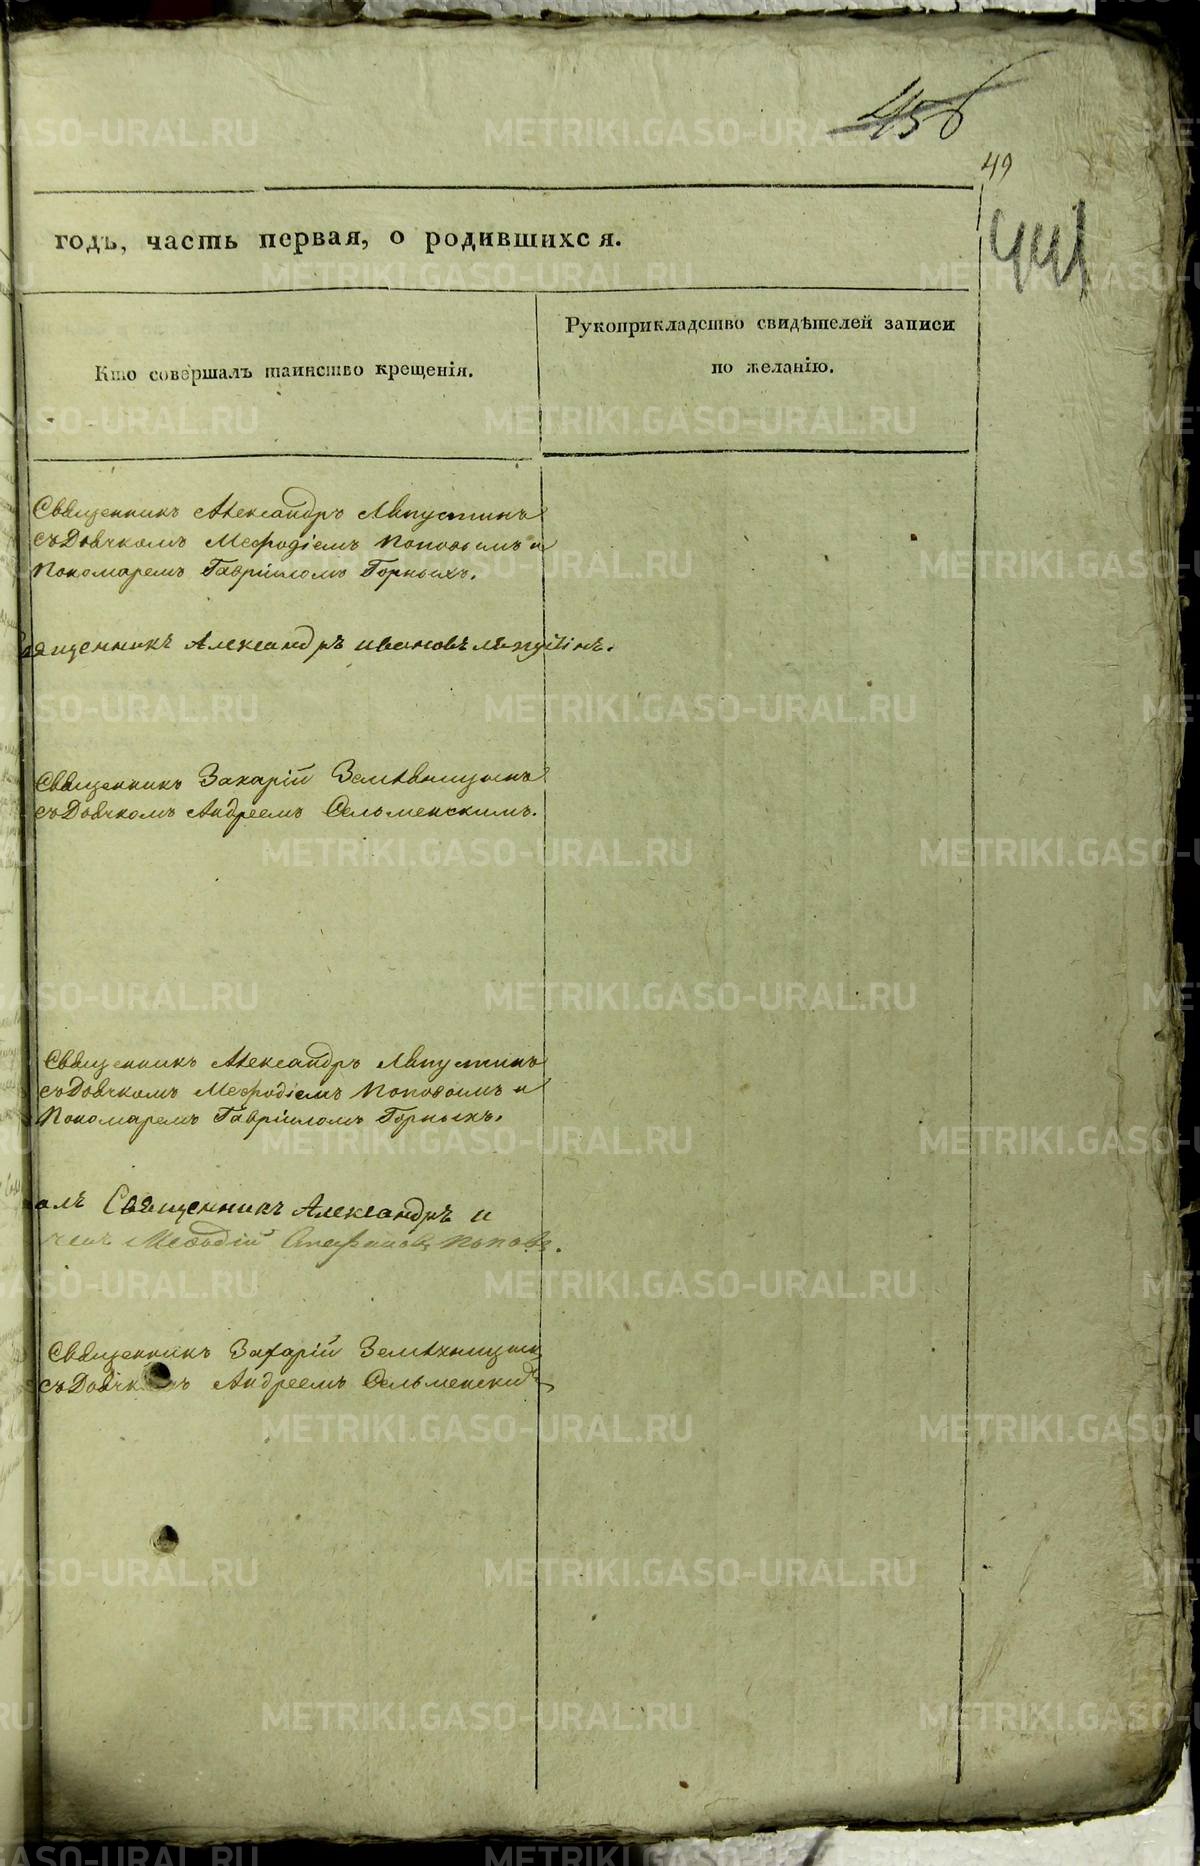 456
49
441
годъ, часть первая, о родившихся.
Кто совершалъ таинство крещенія.
Рукоприкладство свидѣтелей записи
по желанію.
Священникъ Александръ
съ Дьячкомъ Мефодіемъ Поповымъ и
Пономаремъ Гавріиломъ Горныхъ.
Священникъ Александръ Ивановъ
Священникъ Захарій Земляницынъ
съ Дьячкомъ Андреемъ Сельменскимъ.
Священникъ Александръ
съ Дьячкомъ Мефодіемъ Поповымъ и
Пономаремъ Гавріиломъ Горныхъ.
алъ Священникъ Александръ и
Мефодій Стефановъ Поповъ.
Священникъ Захарій Земляницынъ
съ Андреемъ Сельменскимъ
METRIKI.GASO-URAL.RU